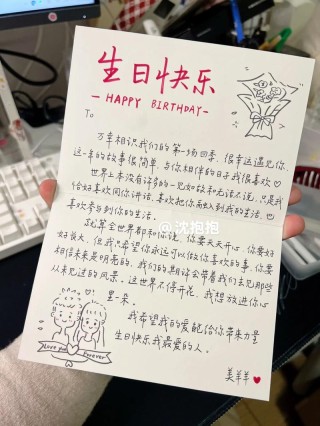 生日快乐
- HAPPY BIRTHDAY -
To
万幸相识我们的第一场四季. 很幸运遇见你.
这一年的故事很简单. 与你相伴的日子我很喜欢♡
世界上本没有许多的一见如故和无话不说. 只是我
恰好喜欢同你讲话. 喜欢把你融入到我的生活. 也
喜欢参与到你的生活.
就算全世界都和你说. 你要天天开心. 你要好
好长大. 但我只希望你永远可以做你喜欢的事. 你要
相信未来是明亮的. 我们的期许会带着我们去见那些
从未见过的风景. 这世界不停开花. 我想放进你心
里一朵.
我希望我的爱能给你带来力量
生日快乐我最爱的人.
美羊羊
@沈抱抱
I love you Forever